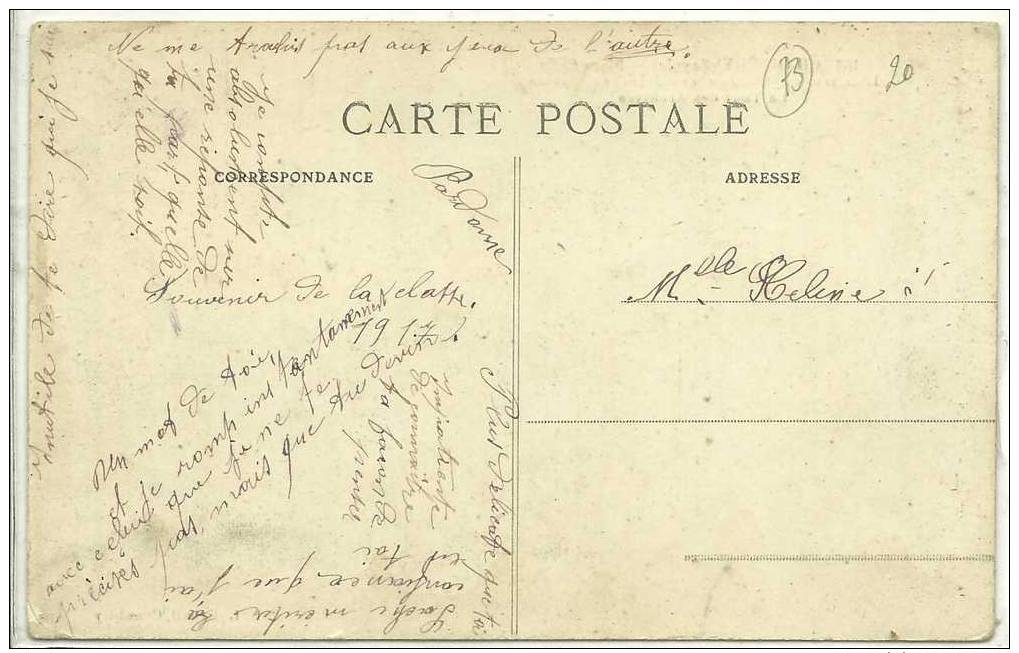 Ne me trahis pas aux yeux de l'autre.
73
20
CARTE POSTALE
CORRESPONDANCE
ADRESSE
Je compte
absolument sur
une réponse de
ta part quelle
qu'elle soit.
Pardonne
Souvenir de la classe.
1917
Mlle Helene
Inutile de te dire qui je suis
Un mot de toi,
et je romps instantanement
avec celui que je ne te
précises pas, mais que tu devines
impatiente
de connaitre
ta façon de
penser
Plus delicate que toi
Sache mériter la
confiance que j'ai
en toi